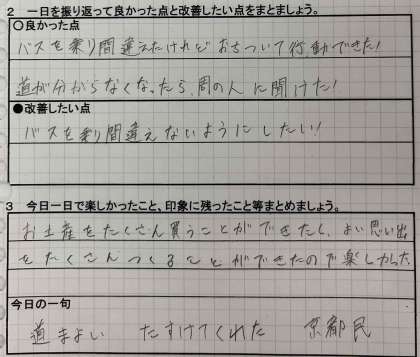 2 一日を振り返って良かった点と改善したい点をまとめましょう。
○良かった点
バスを乗り間違えたけれどおちついて行動できた!
道が分からなくなったら、周の人に聞けた!
●改善したい点
バスを乗り間違えないようにしたい!
3 今日一日で楽しかったこと、印象に残ったこと等まとめましょう。
お土産をたくさん買うことができたし、よい思い出
をたくさんつくることができたので楽しかった
今日の一句
道まよい たすけてくれた 京都民